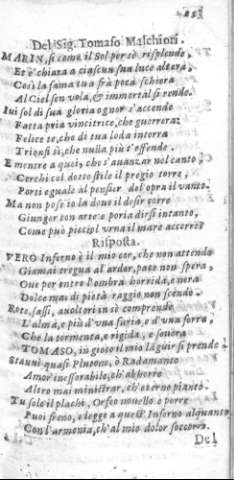 Del Sig. Tomaso Malchiori.
MARIN, si come il Sol per sè risplende,
Et è chiara a ciascun sua luce altera,
Così la fama tua frà poca schiera
Al Ciel sen vola, & immortal si rende.
Iui sol di sua gloria ognor s'accende
Fatta pria vincitrice, che guerrera:
Felice te, che di tua loda intera
Trionfi sì, che nulla più t'offende.
E mentre a quei, che s'auanzar nel canto
Cerchi col dotto stile il pregio torre,
Porti eguale al pensier del opra il vanto.
Ma non pose io la doue il desir corre
Giunger con arte e poria dirsi intanto,
Come può picciol vrna il mare accorre?
Risposta.
VERO Inferno è il mio cor, che non attende
Giamai tregua al ardor, pace non spera,
Oue per entro l'ombra horrida, e nera
Dolce mai di pietà raggio non scende.
Rote, sassi, auoltori in sè comprende
L'alma, e più d'vna furia, e d'vna fera,
Che la tormenta, e rigida, e seuera
TOMASO, in gioco il mio languir si prende.
Stauui quasi Plutone, ò Radamanto
Amor inessorabile, ch'abhorre
Altro mai ministrar, ch'eterno pianto.
Tu solo il plachi, Orfeo nouello e porre
Puoi freno, e legge a quest' Inferno alquanto
Con l'armonia, ch'al mio dolor soccorre.
Del